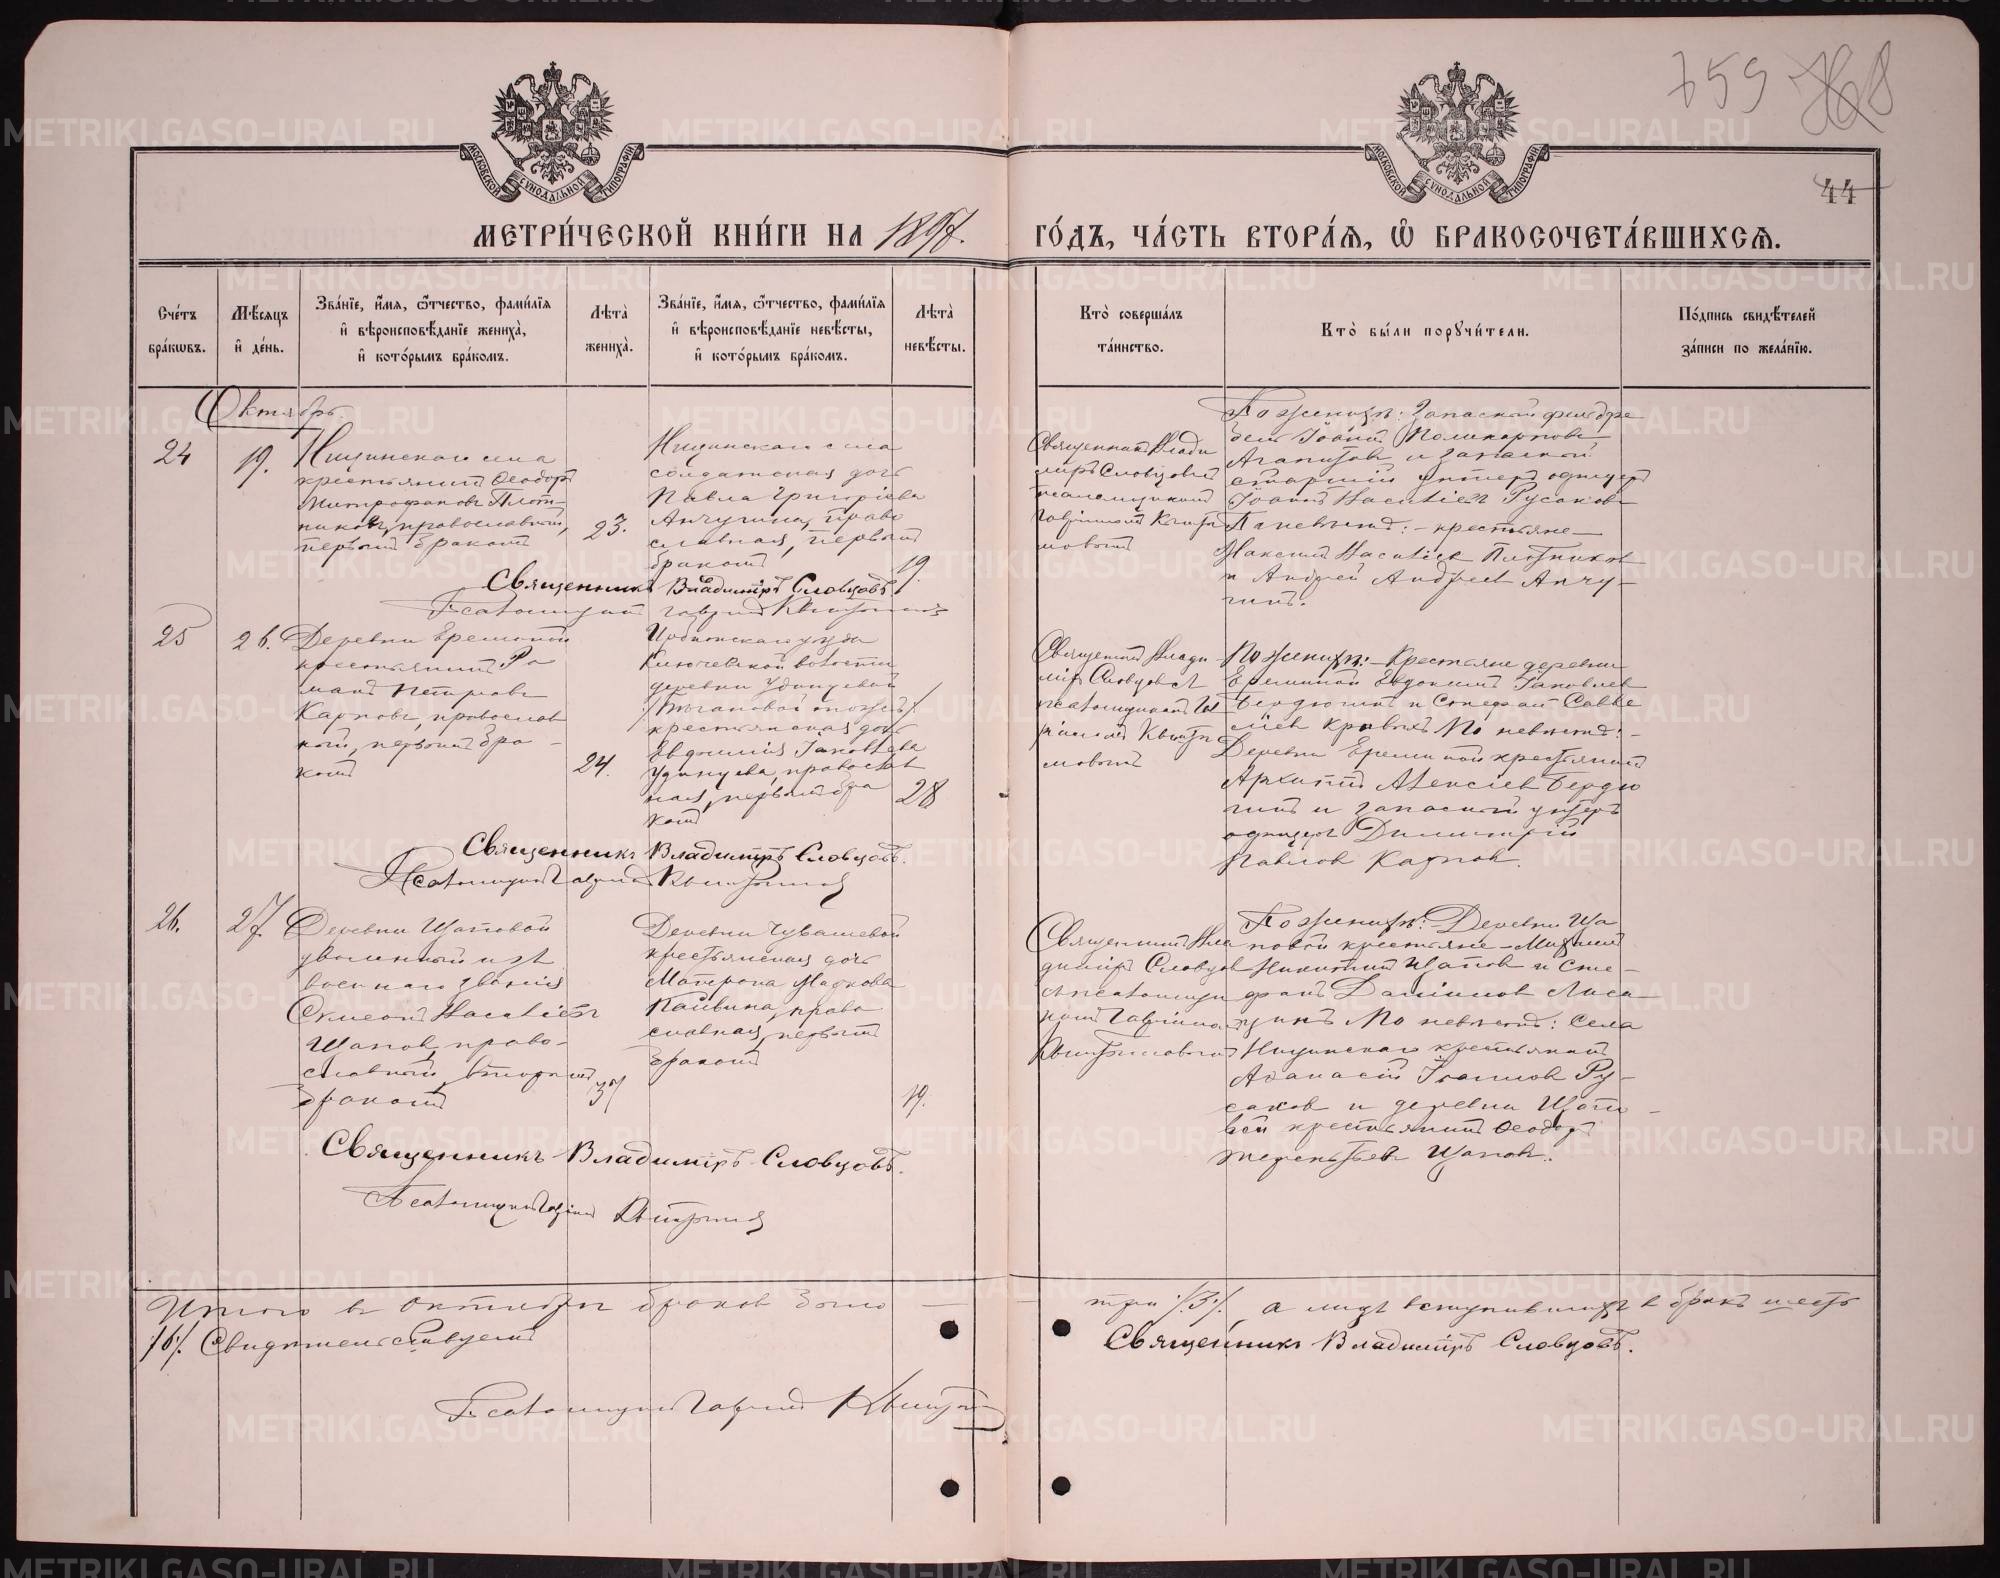 759 768
44
МОСКОВСКОЙ СУНОДАЛЬНОЙ ТИПОГРАФИИ
МОСКОВСКОЙ СУНОДАЛЬНОЙ ТИПОГРАФИИ
МЕТРИ́ЧЕСКОЙ КНИ́ГИ НА 1897. ГО́ДЪ, ЧА́СТЬ ВТОРА́Я, Ѽ БРАКОСОЧЕТА́ВШИХСЯ.
Сче́тъ
бра́кѡвъ.
Мѣ́сяцъ
и҆ де́нь.
Зва́нїе, и҆́мя, ѻ҆́тчество, фами́лїя
и҆ вѣроисповѣ́данїе жениха̀,
и҆ кото́рымъ бра́комъ.
Лѣта̀
жениха̀.
Зва́нїе, и҆́мя, ѻ҆́тчество, фами́лїя
и҆ вѣроисповѣ́данїе невѣ́сты,
и҆ кото́рымъ бра́комъ.
Лѣта̀
невѣ́сты.
Кто̀ соверша́лъ
та́инство.
Кто̀ бы́ли порꙋчи́тели.
По́дпись свидѣ́телей
за́писи по жела́нїю.
Октябрь.
24
19.
Ницинскаго села
крестьянинъ Ѳеодоръ
Митрофановъ Плот-
никовъ, православный,
первымъ бракомъ
23.
Ницинскаго села
солдатская дочь
Павла Григоріева
Анчугина, право
славная, первымъ
бракомъ
19.
Священникъ Влади
миръ Словцовъ съ
псаломщикомъ
Гавріиломъ Кышты
мовымъ
По женихѣ: Запасной фельдфе
бель Іоаннъ Поликарповъ
Агапитовъ и запасной
старшій унтеръ офицеръ
Іоаннъ Насиліевъ Русаковъ
По невѣстѣ: - крестьяне
Максимъ Плотниковъ
и Андрей Андреевъ Анчу-
гинъ.
Священникъ Владиміръ Словцовъ.
Псаломщикъ Гавріилъ
25
26.
Деревни Ереминой
крестьянинъ Ро
манъ Петровъ
Карповъ, православ
ный, первымъ бра-
комъ
24.
Ирбитскаго уѣзда
Ключевской волости
деревни Удинцевой
крестьянская дочь
Евдокия Іаковлева
Удинцева, православ
ная, первымъ бра
комъ
28
Священникъ Влади-
міръ Словцовъ съ
псаломщикомъ Гав
ріиломъ Кышты
мовымъ
По женихѣ: - Крестьяне деревни
Ереминой Евдокимъ Іаковлевъ
Бердюгинъ и Стефанъ Савве
По невѣстѣ: -
Деревни Ереминой крестьянинъ
Архиппъ Алексіевъ Бердю
гинъ и запасный унтеръ
офицеръ Димитрій
Павловъ Карповъ.
Священникъ Владиміръ Словцовъ.
Псаломщикъ Гавріилъ
26.
27.
Деревни Щаповой
уволенный изъ
военнаго званія
Симеонъ
Щаповъ, право-
славный, вторымъ
бракомъ
37
Деревни Чувашевой
крестьянская дочь
Матрона Маркова
право
славная, первымъ
бракомъ
19.
Священникъ Вла
диміръ Словцовъ
съ псаломщи
комъ Гавріиломъ
Кыштымовымъ
По женихѣ: Деревни Ща
повой крестьяне - Михаилъ
Никитинъ Щаповъ и Сте-
фанъ Даніиловъ Лиси
цинъ По невѣстѣ: Села
Ницинскаго крестьянинъ
Аѳанасій Іоанновъ Ру-
саковъ и деревни Щапо-
вой крестьянинъ Ѳеодоръ
Терентьевъ Щаповъ.
Священникъ Владиміръ Словцовъ.
Псаломщикъ Гавріилъ
Итого въ октябрѣ браковъ было — три /3/. а лицъ вступившихъ въ бракъ шесть
/6/. Свидѣтельствуемъ Священникъ Владиміръ Словцовъ.
Псаломщикъ Гавріилъ
METRIKI.GASO-URAL.RU